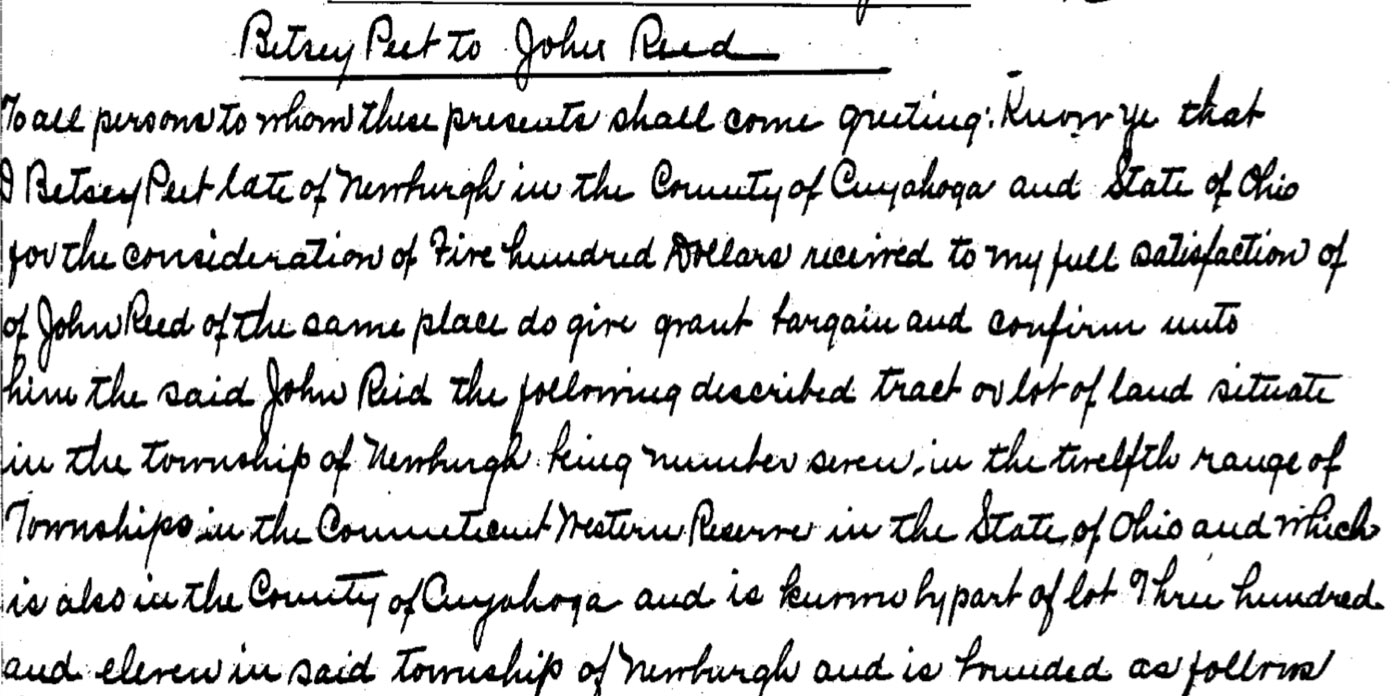 Betsey Peet to John Reed
To all persons to whom these presents shall come greeting: Know ye that
I Betsey Peet late of Newburgh in the County of Cuyahoga and State of Ohio
for the consideration of Five hundred Dollars received to my full satisfaction of
of John Reed of the same place do give grant bargain and confirm unto
him the said John Reid the following described tract or lot of land situate
in the township of Newburgh being number seven, in the twelfth range of
Townships in the Connecticut Western Reserve in the State of Ohio and which
is also in the County of Cuyahoga and is known by part of lot Three hundred
and eleven in said township of Newburgh and is bounded as follows